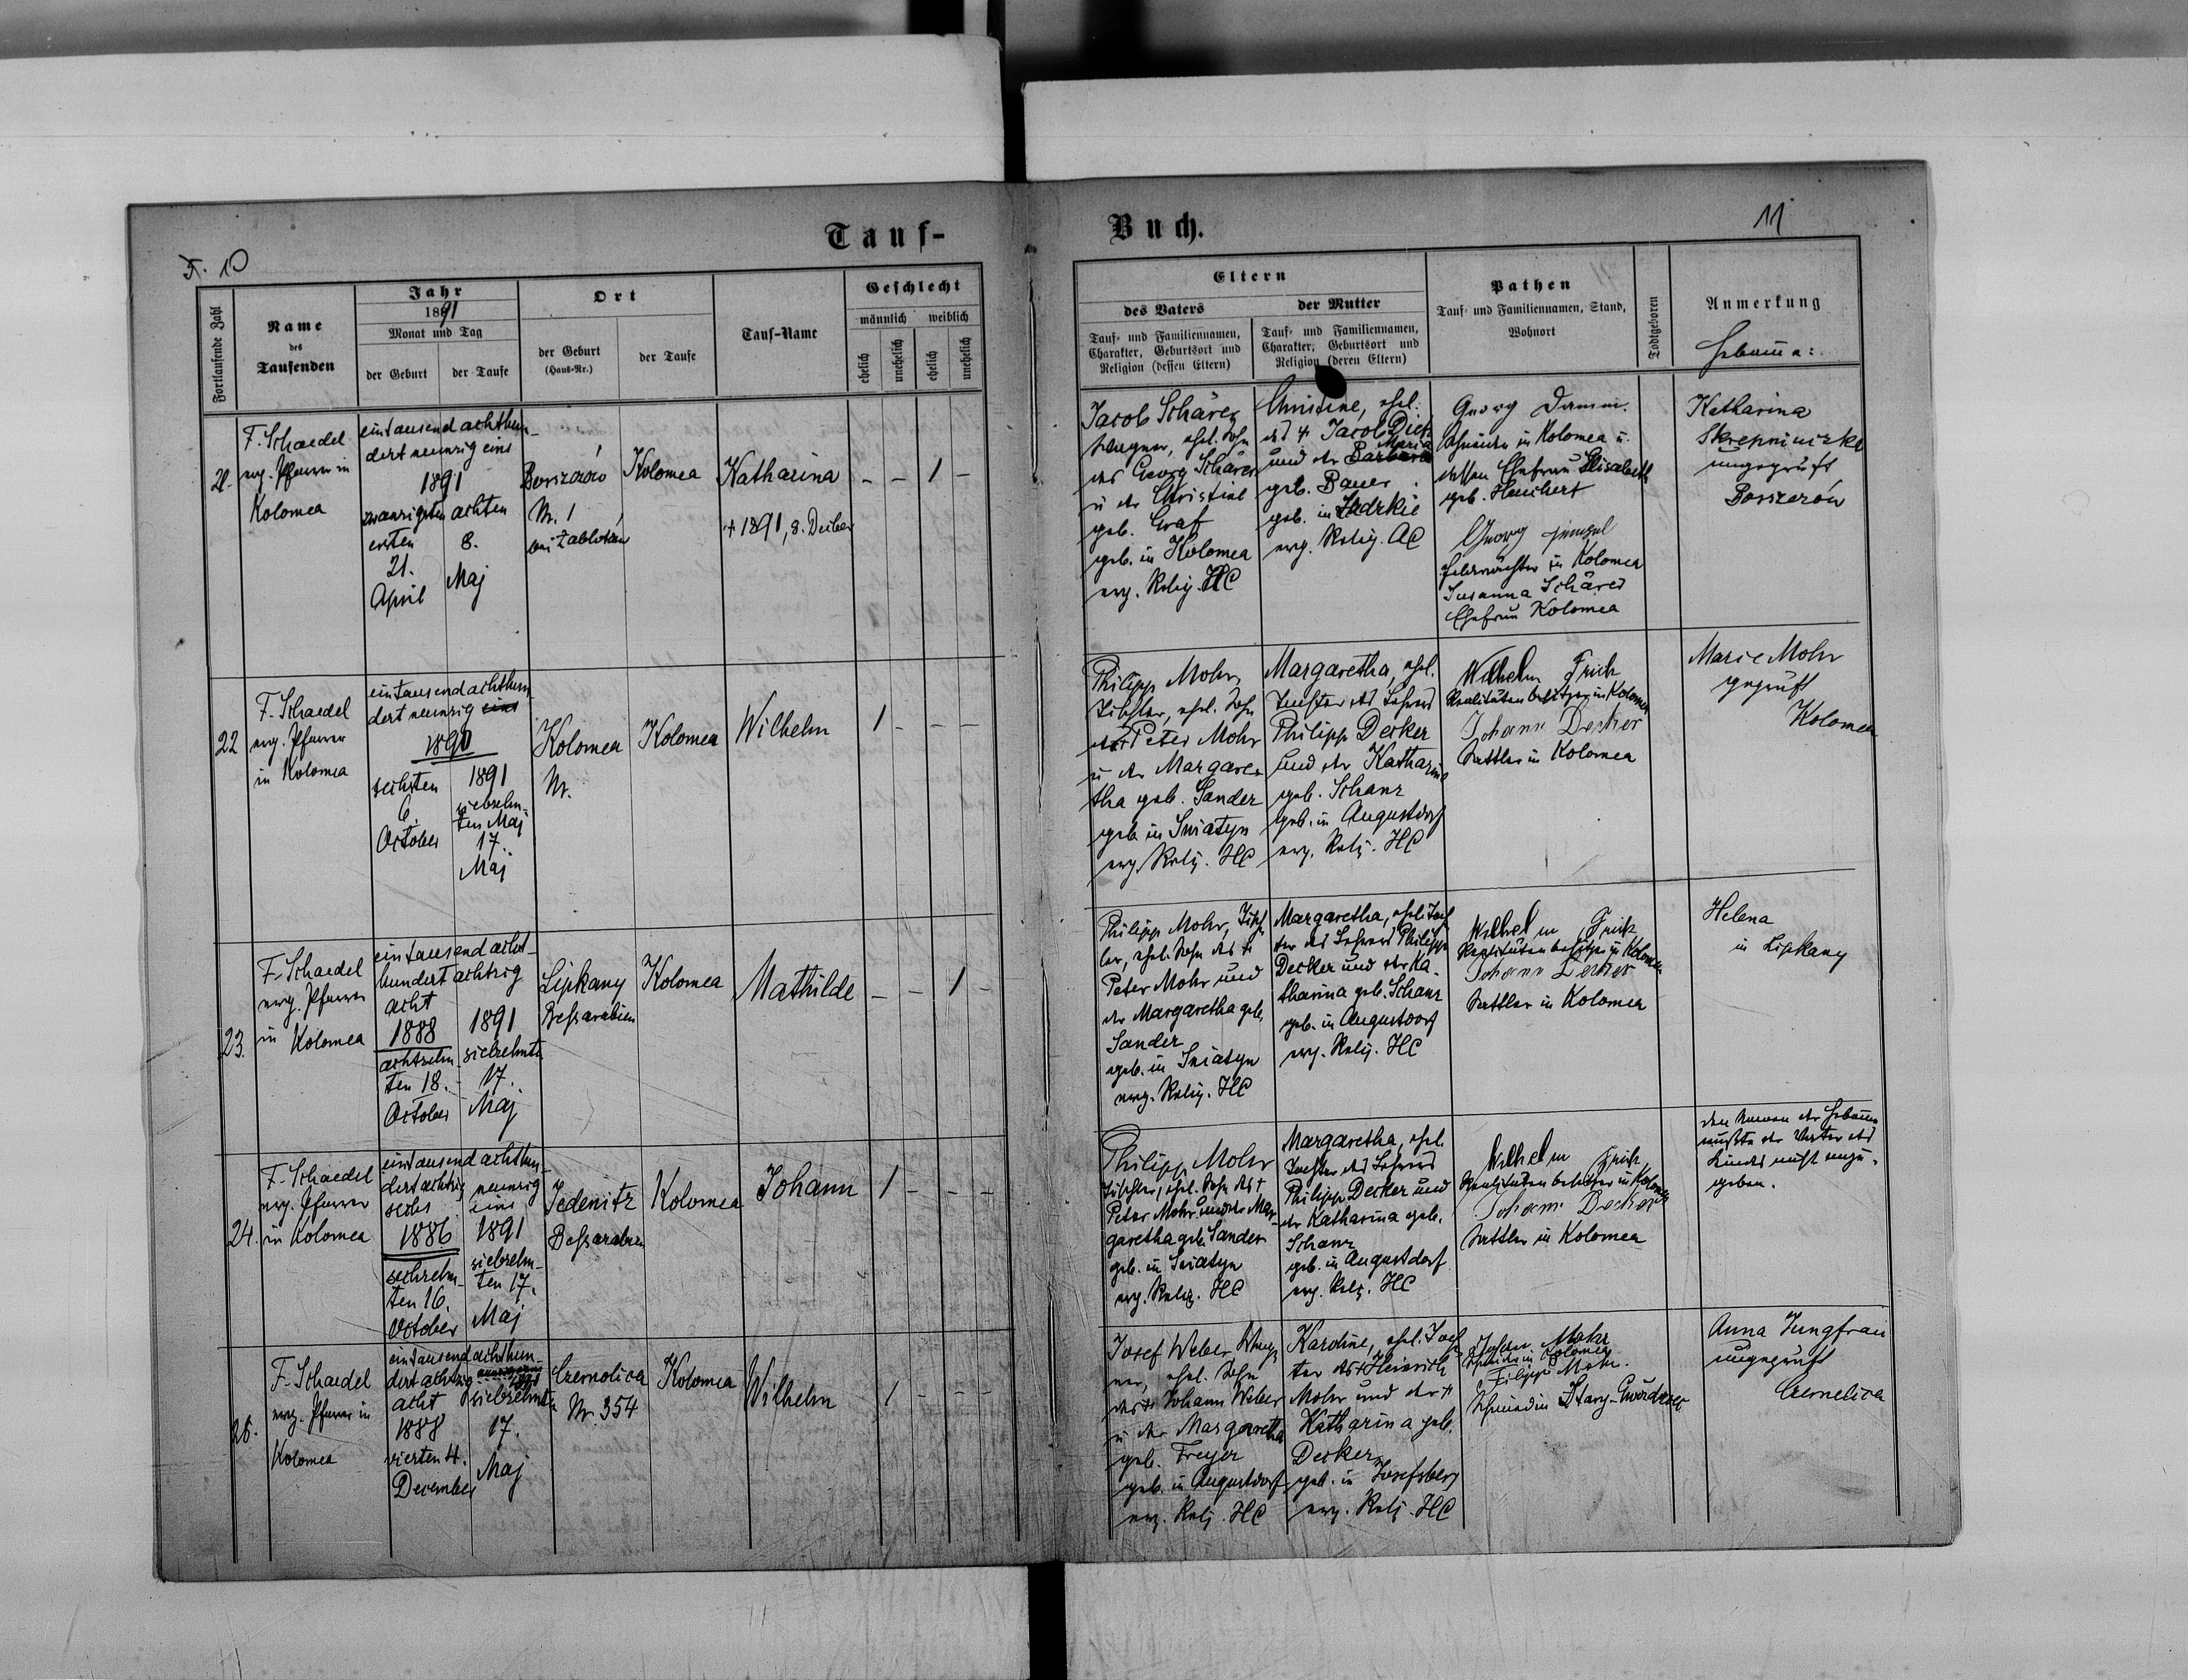 Tauf-
Buch.
F. 10
11
Fortlaufende Zahl
Name
des
Taufenden
Jahr
1891
Monat und Tag
der Geburt
der Taufe
Ort
der Geburt
(Haus-Nr.)
der Taufe
Tauf-Name
Geschlecht
männlich
weiblich
ehelich
unehelich
ehelich
unehelich
Eltern
des Vaters
Tauf- und Familiennamen,
Charakter, Geburtsort und
Religion (dessen Eltern)
der Mutter
Tauf- und Familiennamen,
Charakter, Geburtsort und
Religion (deren Eltern)
Pathen
Tauf- und Familiennamen, Stand,
Wohnort
Todtgeboren
Anmerkung
Hebamme:
21.
F. Schaedel
evg. Pfarrer in
Kolomea
eintausend achthun-
dert neunzig eins
1891
zwanzigsten
ersten
21.
April
achten
8.
Maj
Borszczów
Nr. 1
bei Zablotów
Kolomea
Katharina
+ 1891, 8. Decber
- - 1 -
Jacob Schärer
Wagner, ehel. Sohn
des Georg Schärer
u der Christine
geb. Graf
geb. in Kolomea
evg. Relig. HC
Christine, ehel.
des + Jacob Dick
Maria
und der Barbara
geb. Bauer
geb. in
evg. Relig. AC
Georg Damm
Schneider in Kolomea u.
dessen Ehefrau Elisabeth
geb. Heuchert
Georg Hensel
Feldwächter in Kolomea
Susanna Schärer
Ehefrau Kolomea
Katharina
ungeprüft
Borszczów
22
F. Schaedel
evg. Pfarrer
in Kolomea
eintausend achthun-
dert neunzig eins
1890
sechsten
6.
October
1891
siebzehn-
ten Maj
17.
Maj
Kolomea
Nr.
Kolomea
Wilhelm
1 - - -
Philipp Mohr,
Tischler, ehel. Sohn
des Peter Mohr
u der Margare-
tha geb. Sander
geb. in Sniatyn
evg. Relig. HC
Margaretha, ehel.
Tochter des Lehrers
Philipp Decker
und der Katharina
geb. Schanz
geb. in Augustdorf
evg. Relig. HC
Wilhelm Frick
Realitätenbesitzer in Kolomea
Johann Decker
Sattler in Kolomea
Marie Mohr
geprüft
Kolomea
23.
F. Schaedel
evg. Pfarrer
in Kolomea
eintausend acht-
hundert achtzig
acht
1888
achtzehn-
ten 18.
October
1891
siebzehnten
17.
Maj
Lipkany
Beßarabien
Kolomea
Mathilde
- - 1 -
Philipp Mohr, Tisch-
ler, ehel. Sohn des +
Peter Mohr und
der Margaretha geb.
Sander
geb. in Sniatyn
evg. Relig. HC
Margaretha, ehel. Toch-
ter des Lehrers Philipp
Decker und der Ka-
tharina geb. Schanz
geb. in Augustdorf
evg. Relig. HC
Wilhelm Frick
Realitätenbesitzer in Kolomea
Johann Decker
Sattler in Kolomea
Helena
in Lipkany
24.
F. Schaedel
evg. Pfarrer
in Kolomea
eintausend achthun-
dert achtzig
sechs
1886
sechzehn-
ten 16.
October
neunzig
eins
1891
siebzehn-
ten 17.
Maj
Jedenitz
Beßarabien
Kolomea
Johann
1 - - -
Philipp Mohr
Tischler, ehel. Sohn des +
Peter Mohr und der Mar-
garetha geb. Sander
geb. in Sniatyn
evg. Relig. HC
Margaretha, ehel.
Tochter des Lehrers
Philipp Decker und
der Katharina geb.
Schanz
geb. in Augustdorf
evg. Relig. HC
Wilhelm Frick
Realitätenbesitzer in Kolomea
Johann Decker
Sattler in Kolomea
Den Namen der Hebamme
wußte der Vater des
Kindes nicht anzu-
geben.
25.
F. Schaedel
evg. Pfarrer in
Kolomea
eintausend achthun-
dert achtzig
acht
1888
vierten 4.
December
1891
siebzehnten
17.
Maj
Czernelica
Nr. 354
Kolomea
Wilhelm
1 - - -
Josef Weber, Wag-
ner, ehel. Sohn
des + Johann Weber
u der Margaretha
geb. Freyer
geb. in Augustdorf
evg. Relig. HC
Karoline, ehel. Toch-
ter des + Heinrich
Mohr und der +
Katharina geb.
Decker
geb. in Josefsberg
evg. Relig. HC
Mohr
in Kolomea
Filipp Mohr
Schmied in
Anna Jungfrau
ungeprüft
Czernelica